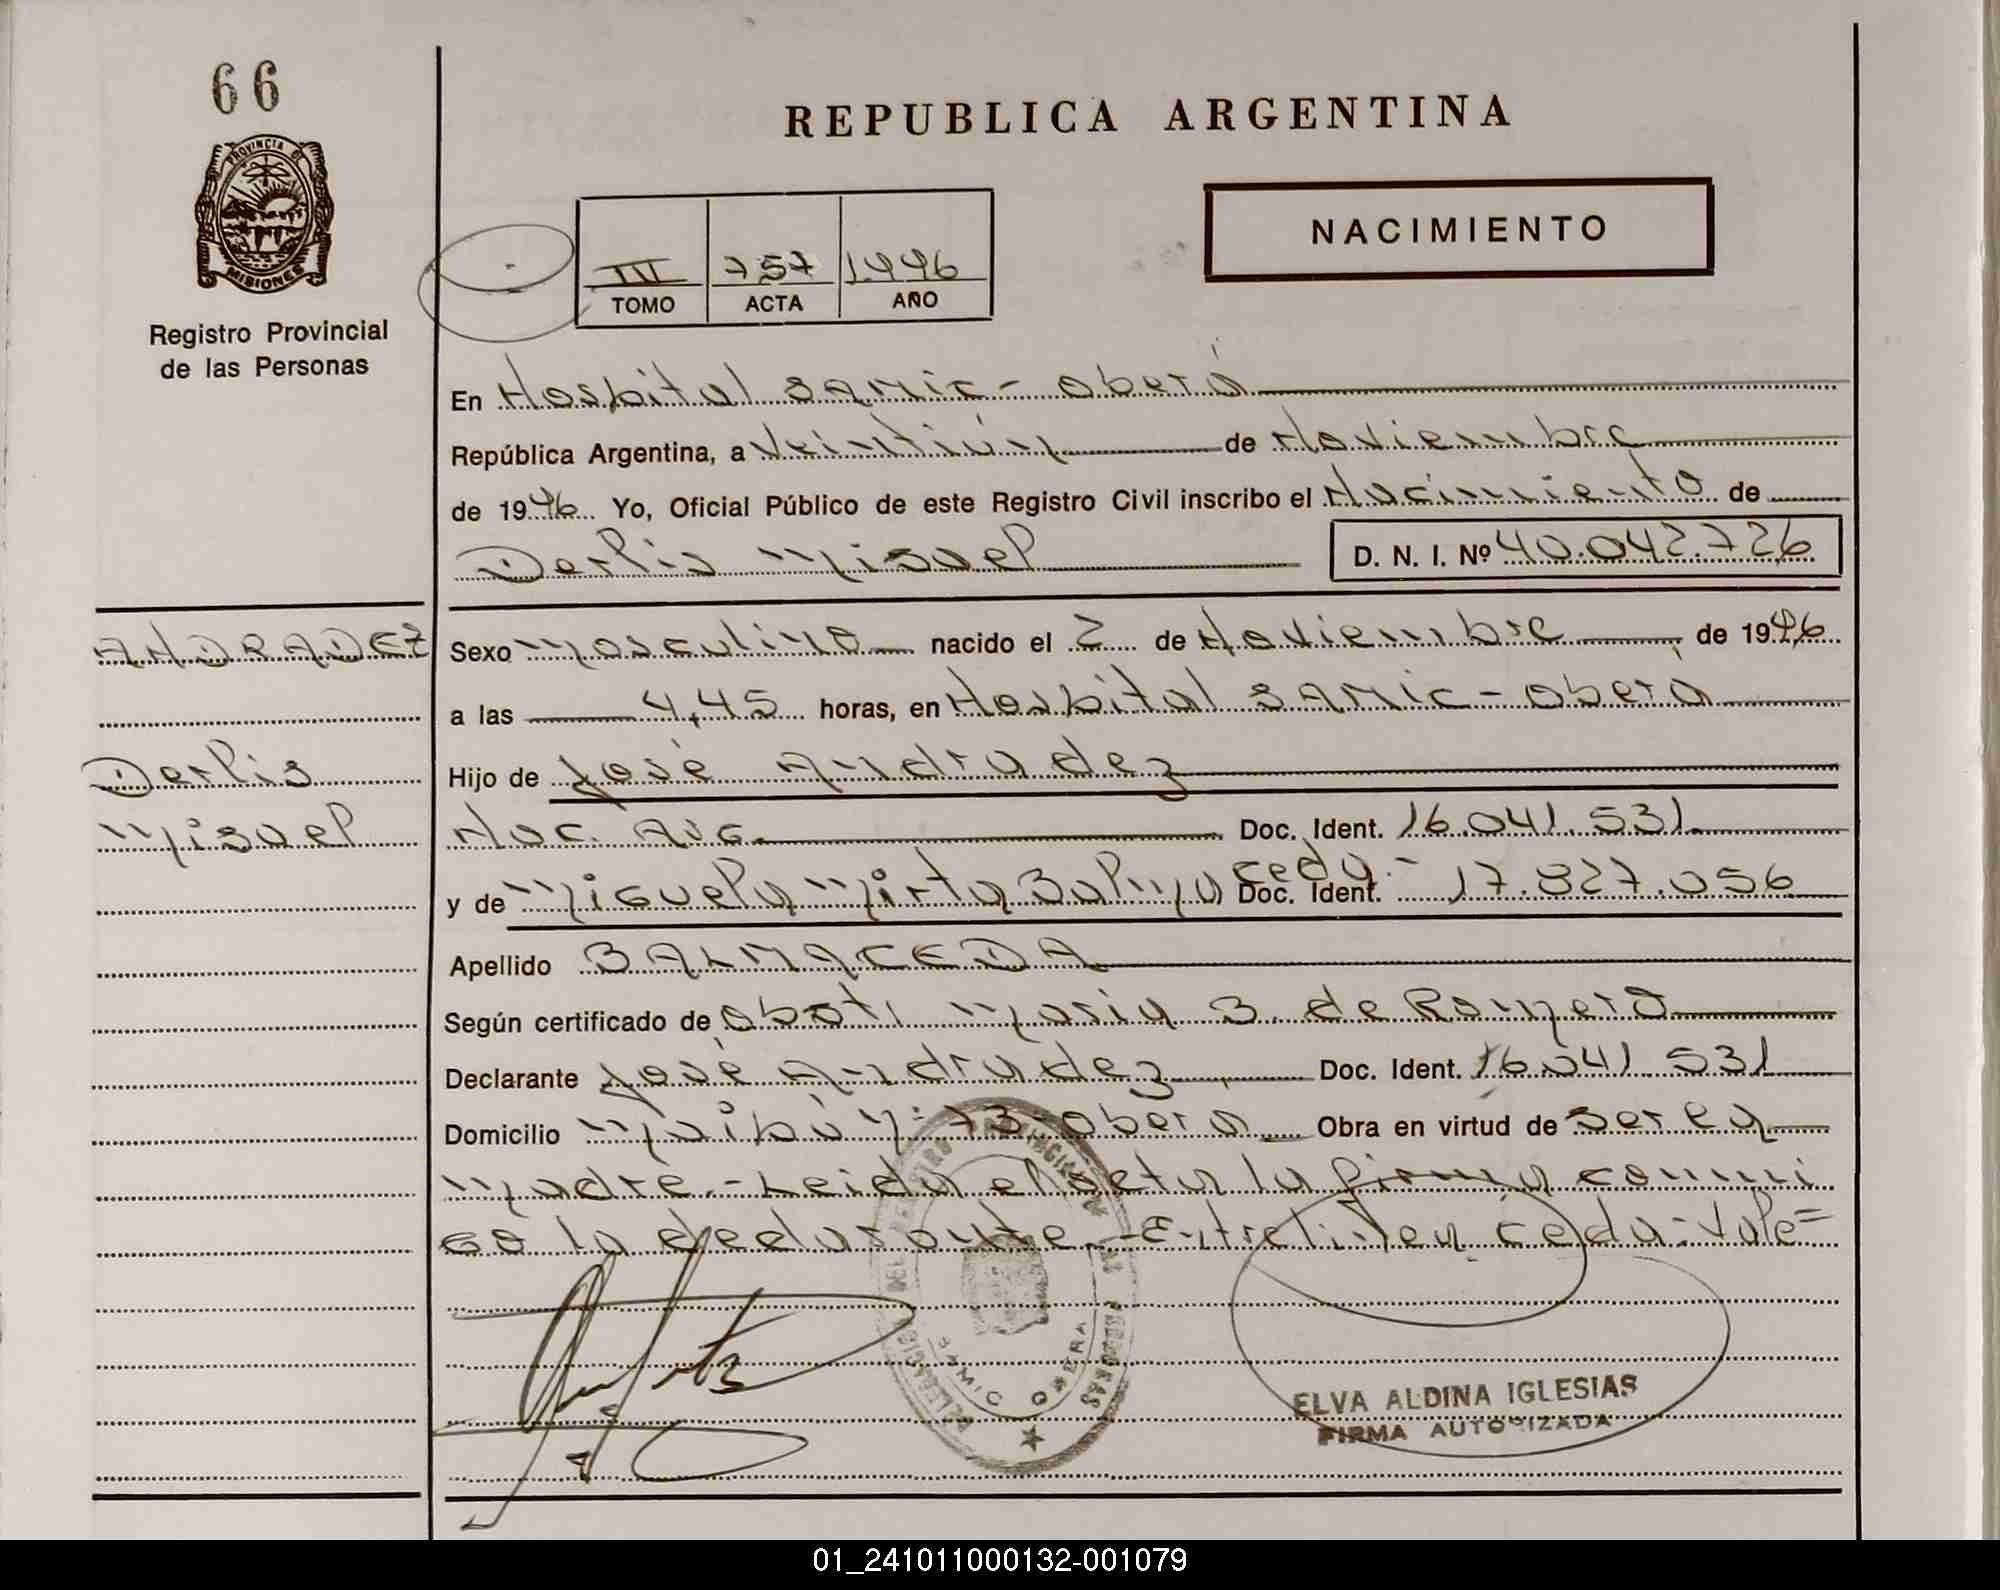 66
PROVINCIA DE
MISIONES
Registro Provincial
de las Personas
REPUBLICA ARGENTINA
NACIMIENTO
III 757 1996
TOMO ACTA AÑO
En Hospital SAMIC - Oberá
República Argentina, a Veintiún de Noviembre
de 1996 Yo, Oficial Público de este Registro Civil inscribo el Nacimiento de
Derlis Miguel D. N. I. Nº 40.042.726
ANDRADEZ
Derlis
Miguel
Sexo Masculino nacido el 2 de Noviembre de 1996
a las 4,45 horas, en Hospital SAMIC - Oberá
Hijo de José Andradez
Nac. Arg. Doc. Ident. 16.041.531
y de Miguela Mirta Balma ceda.- Doc. Ident. 17.827.056
Apellido BALMACEDA
Según certificado de Obst. Maria B. de Romero
Declarante José Andradez Doc. Ident. 16.041.531
Domicilio Maibú Nº 73 Oberá Obra en virtud de ser la
madre.- Leida el acta la firma conmi
go la declarante.- Entrelinea: ceda: Vale=
DELEGACION DEL REGISTRO PROVINCIAL DE LAS PERSONAS
SAMIC OBERA
ELVA ALDINA IGLESIAS
FIRMA AUTORIZADA
01_241011000132-001079